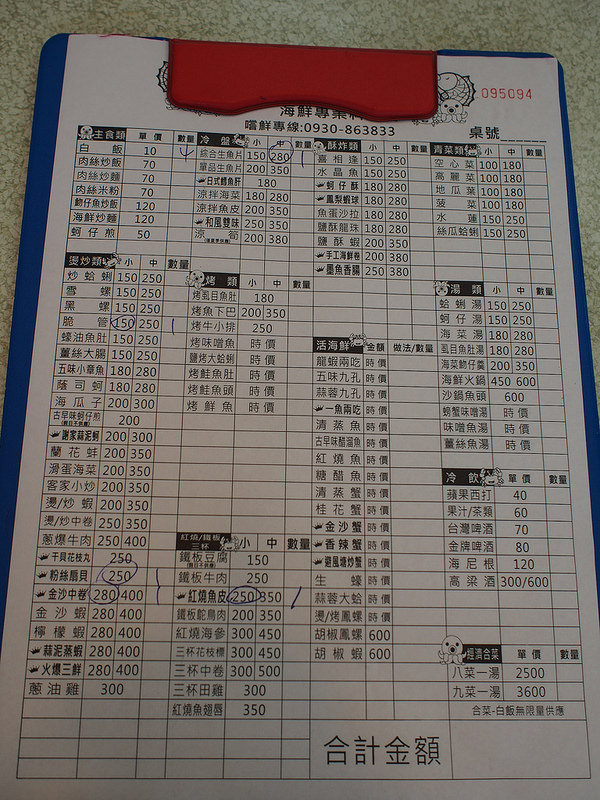 095094
海鮮專業料
嚐鮮專線:0930-863833
桌號
主食類 單價 數量
白飯 10
肉絲炒飯 70
肉絲炒麵 70
肉絲米粉 70
魩仔魚炒飯 120
海鮮炒麵 120
蚵仔煎 50
冷盤 小 中 數量
綜合生魚片 150 280
單品生魚片 250 350
日式鱈魚肝 180
涼拌海菜 180 280
涼拌魚皮 200 350
和風雙味 250 350
涼筍 200 380
酥炸類 小 中
喜相逢 150 250
水晶魚 150 250
蚵仔酥 180 280
鳳梨蝦球 180 280
魚蛋沙拉 180 280
鹽酥龍珠 180 280
鹽酥蝦 200 350
手工海鮮卷 200 380
墨魚香腸 250 380
青菜類 小 中
空心菜 100 180
高麗菜 100 180
地瓜葉 100 180
菠菜 100 180
水蓮 150 250
絲瓜蛤蜊 150 250
燙炒類 小 中 數量
炒蛤蜊 150 250
雪螺 150 250
黑螺 150 250
脆管 150 250
蠔油魚肚 150 250
薑絲大腸 150 250
五味小章魚 180 280
蔭司蚵 180 280
海瓜子 200 300
古早味蚵仔煎 200
謝家蒜泥蚵 200 300
蘭花蚌 200 350
滑蛋海菜 200 350
客家小炒 200 350
燙/炒蝦 200 350
燙/炒中卷 250 350
蔥爆牛肉 250 400
干貝花枝丸 250
粉絲扇貝 250
金沙中卷 280 400
金沙蝦 280 400
檸檬蝦 280 400
蒜泥蒸蝦 280 400
火爆三鮮 280 400
蔥油雞 300
烤類 小 中 數量
烤虱目魚肚 180
烤魚下巴 200 350
烤牛小排 250
烤味噌魚 時價
鹽烤大蛤蜊 時價
烤鮭魚肚 時價
烤鮭魚頭 時價
烤鮮魚 時價
紅燒/鐵板 三杯 小 中 數量
鐵板豆腐 150
鐵板牛肉 250
紅燒魚皮 250 350
鐵板鴕鳥肉 200 350
紅燒海參 300 450
三杯花枝標 300 450
三杯中卷 300 500
三杯田雞 300
紅燒魚翅唇 350
活海鮮 金額 做法/數量
龍蝦兩吃 時價
五味九孔 時價
蒜蓉九孔 時價
一魚兩吃 時價
清蒸魚 時價
古早味醋溜魚 時價
紅燒魚 時價
糖醋魚 時價
清蒸蟹 時價
桂花蟹 時價
金沙蟹 時價
香辣蟹 時價
避風塘炒蟹 時價
生蠔 時價
蒜蓉大蛤 時價
燙/烤鳳螺 時價
胡椒鳳螺 600
胡椒蝦 600
湯類 小 中
蛤蜊湯 150 250
蚵仔湯 150 250
海菜湯 180 280
虱目魚肚湯 180 280
海菜魩仔羹 200 350
海鮮火鍋 450 600
沙鍋魚頭 600
螃蟹味噌湯 時價
味噌魚湯 時價
薑絲魚湯 時價
冷飲 單價 數量
蘋果西打 40
果汁/茶類 60
台灣啤酒 70
金牌啤酒 80
海尼根 120
高粱酒 300/600
經濟合菜 單價 數量
八菜一湯 2500
九菜一湯 3600
合菜-白飯無限量供應
合計金額